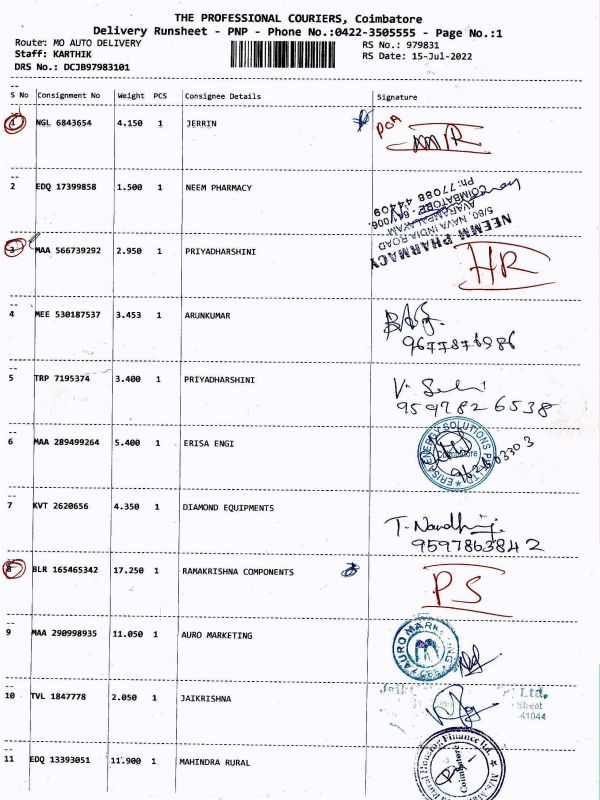 THE PROFESSIONAL COURIERS, Coimbatore
Delivery Runsheet - PNP - Phone No.:0422-3505555 - Page No.:1
Route: MO AUTO DELIVERY
RS No.: 979831
Staff: KARTHIK
RS Date: 15-Jul-2022
DRS No.: DCJB97983101
S No Consignment No Weight PCS Consignee Details Signature
1 NGL 6843654 4.150 1 JERRIN
2 EDQ 17399858 1.500 1 NEEM PHARMACY
NEEMM PHARMACY
5/80, NAVA INDIA ROAD
AVARAMPALAYAM
COIMBATORE - 641006.
Ph: 77088 44409
3 MAA 566739292 2.950 1 PRIYADHARSHINI HR
4 MEE 530187537 3.453 1 ARUNKUMAR
5 TRP 7195374 3.400 1 PRIYADHARSHINI
9597826538
6 MAA 289499264 5.400 1 ERISA ENGI
ERISA ENERGY SOLUTIONS PVT LTD
Coimbatore
7 KVT 2620656 4.350 1 DIAMOND EQUIPMENTS
9597863842
8 BLR 165465342 17.250 1 RAMAKRISHNA COMPONENTS PS
9 MAA 290998935 11.050 1 AURO MARKETING
AURO MARKETING
10 TVL 1847778 2.050 1 JAIKRISHNA
t. Ltd.
Street
-41044
11 EDQ 13393051 11.900 1 MAHINDRA RURAL
Rural Housing Finance Ltd.
Coimbatore